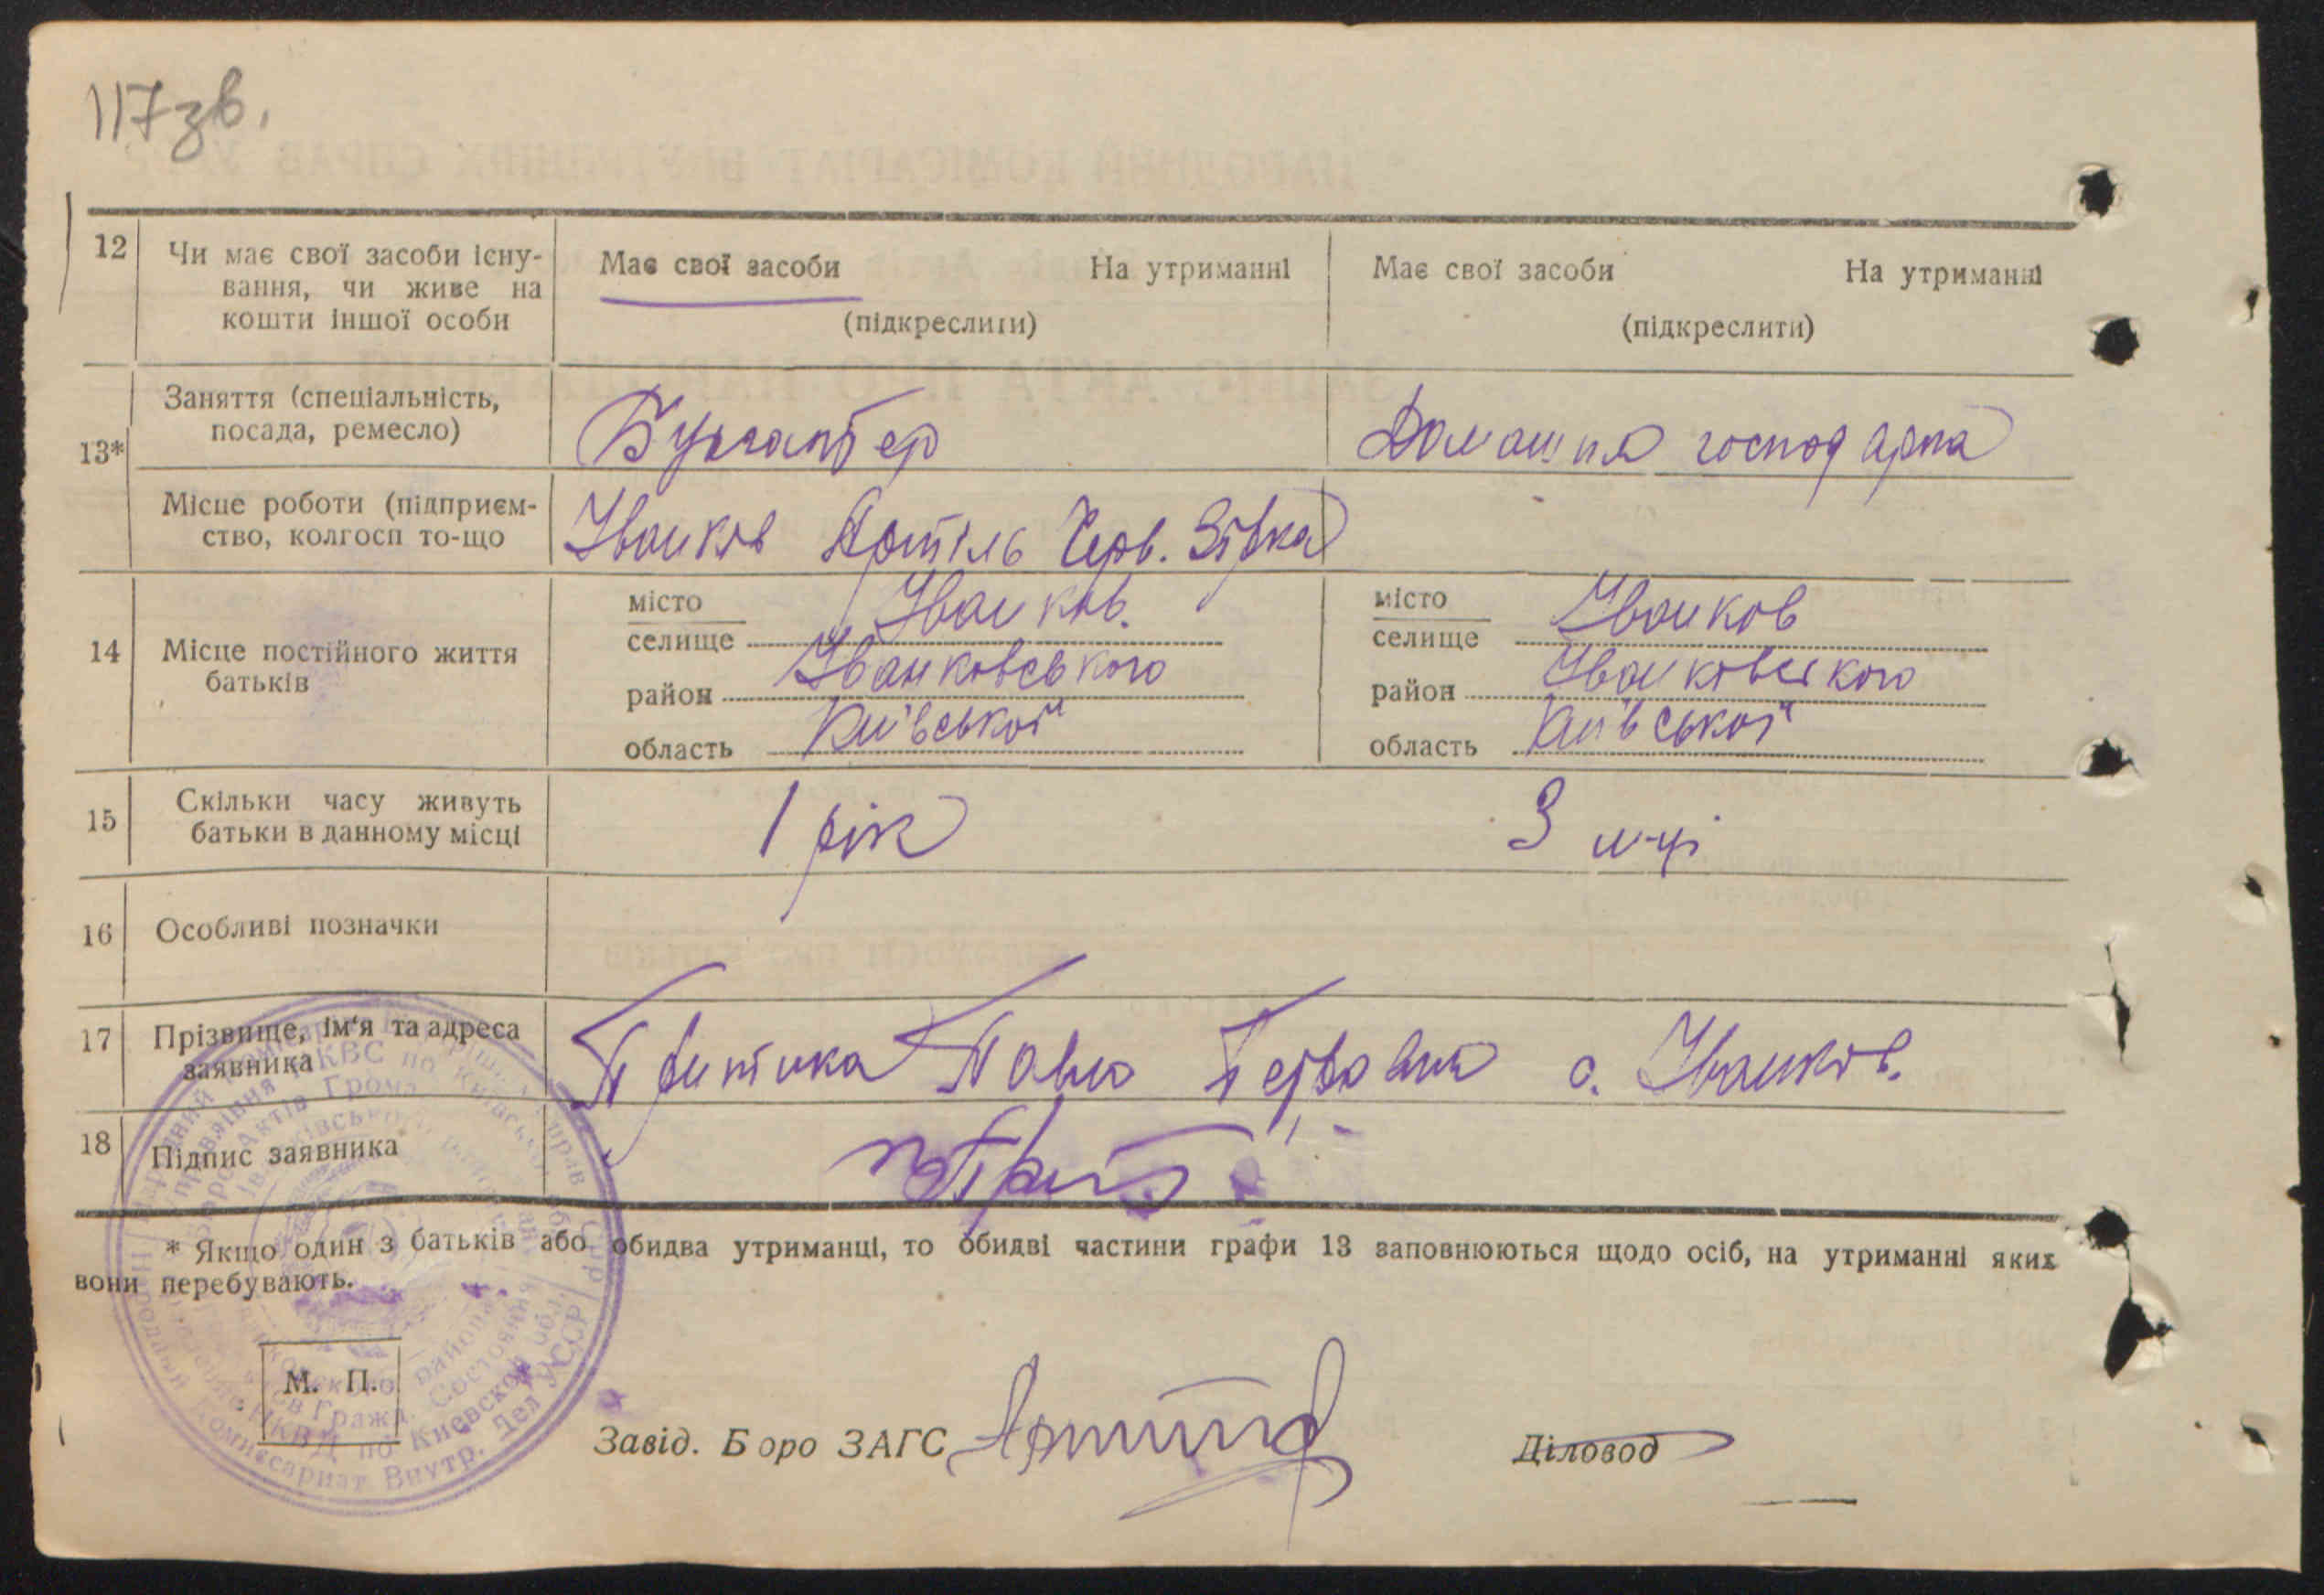 117 зв.
12 Чи має свої засоби існу-
вання, чи живе на
кошти іншої особи
Має свої засоби На утриманні
(підкреслити)
Має свої засоби На утриманні
(підкреслити)
13*
Заняття (спеціальність,
посада, ремесло)
Бухгалтер
Домашня господарка
Місце роботи (підприєм-
ство, колгосп то-що
Іванків Артіль Черв. Зірка
14 Місце постійного життя
батьків
місто
селище Іванків.
район Іванковського
область Київської
місто
селище Іванков
район Іванковського
область Київської
15 Скільки часу живуть
батьки в данному місці
1 рік
3 м-ці
16 Особливі позначки
17 Прізвище, ім'я та адреса
заявника
Притика Павло с. Іванків.
18 Підпис заявника
* Якщо один з батьків або обидва утриманці, то обидві частини графи 13 заповнюються щодо осіб, на утриманні яких
вони перебувають.
М. П.
Завід. Боро ЗАГС
Діловод